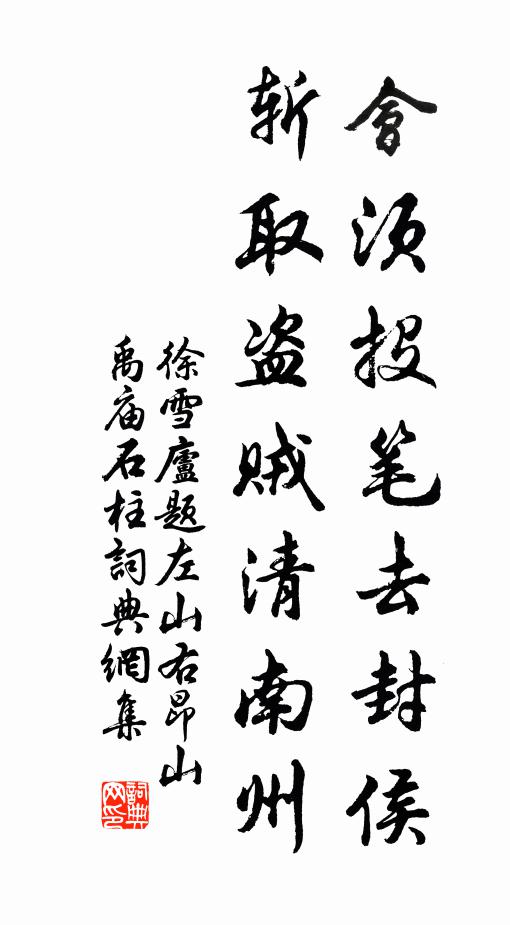 會須投笔去封侯
斬取盗賊清南州
徐雪廬题左山右昂山
禹庙石柱詞典網集
詞典网印